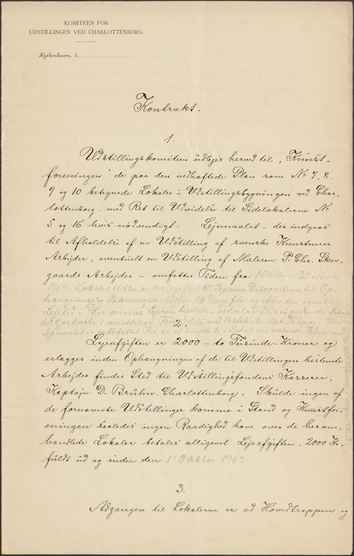 KOMITEEN FOR
UDSTILLINGEN VED CHARLOTTENBORG.
Kjøbenhavn, d.
Kontrakt.
1.
Udstillingskomiteen udlejer herved til "Kunst-
foreningen" de paa den vedhæftede Plan som No 7, 8,
9 og 10 betegnede Lokaler i Udstillingsbygningen ved Char-
lottenborg med Ret til Udvidelse til Sidelokalerne No
5 og 16 hvis nødvendigt. Lejemaalet - der indgaas
til Afholdelse af en Udstilling af
Arbejder, eventuelt en Udstilling af Maleren P. Chr. Skov-
gaards Arbejder - omfatter Tiden fra
2.
Lejeafgiften er 2000 - to Tusinde Kroner og
erlægges inden Ophængningen af de til Udstillingen hørende
Arbejder finder Sted til Udstillingsfondens Kasserer,
Kaptajn D. Bruun Charlottenborg. Skulde ingen af
de fornævnte Udstillinger komme i Stand og Kunstfor-
eningen saaledes ingen Raadighed have over de heram-
handlede Lokaler betales alligevel Lejeafgiften, 2000 Kr
fuldt ud og inden den 1 Oktober
3.
Adgangen til Lokalerne er ad Hovedtrappen og